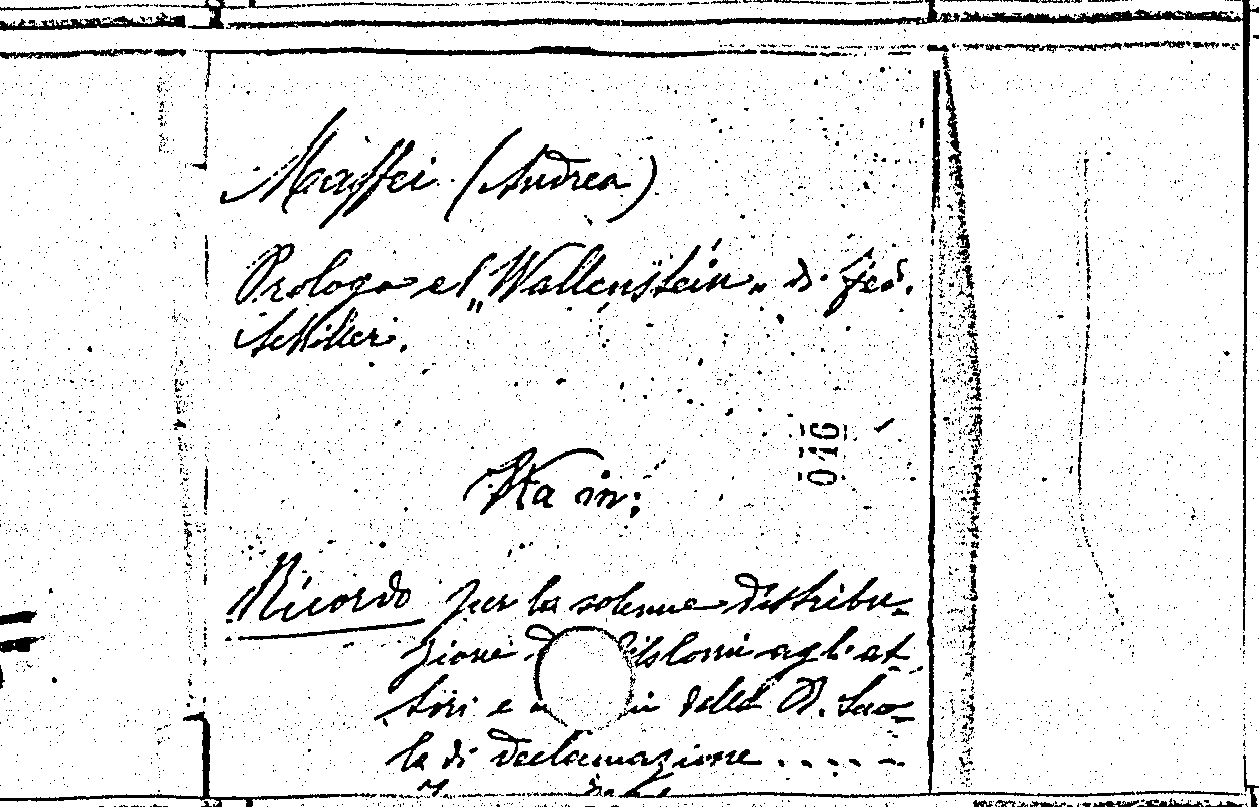 Maffei (Andrea)
Prologo el „Wallenstein„ di Fed.
Schiller.
046
Sta in:
Ricordo per la solenne distribu-
zione diplomi agli at
tori e della R. Scuo-
la di declamazione . . . . .